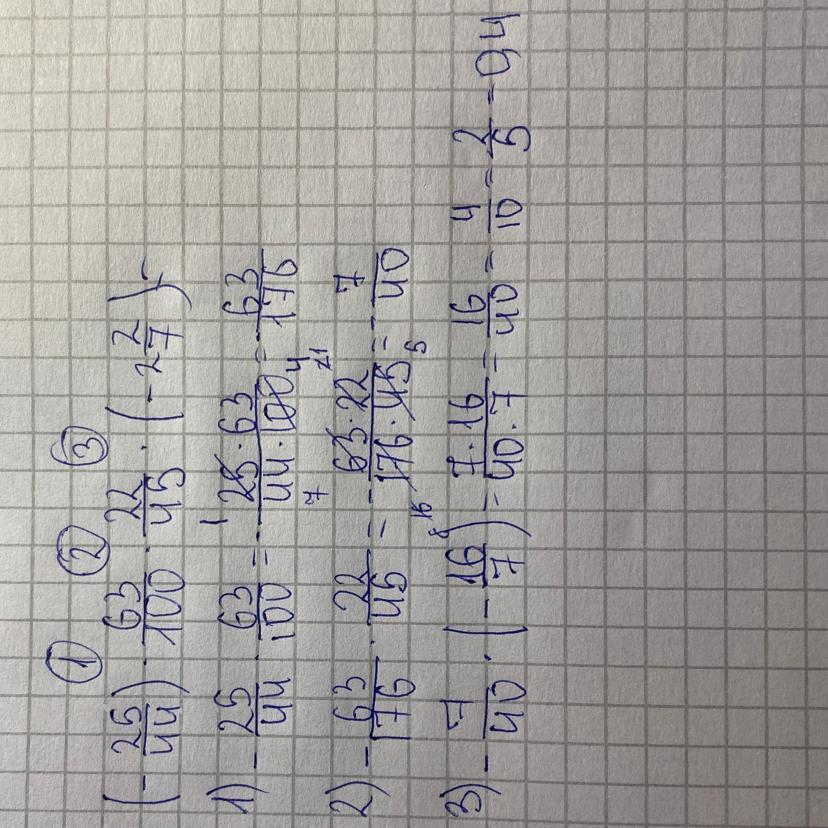 ① ② ③
(-25/44) · 63/100 · 22/45 · (-2 2/7) =
1) -25/44 · 63/100 = -25·63/44·100 = -63/176
1 4
2) -63/176 · 22/45 = -63·22/176·45 = -7/40
7 21 16 8 5
3) -7/40 · (-16/7) = 7·16/40·7 = 16/40 = 4/10 = 2/5 = 0,4